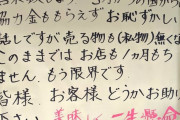 協力金ももらえずお恥ずかしい
話しですが売る物も(私物)無くな
このままではお店も1ヵ月もち
ません。もう限界です。
皆様、お客様どうかお助け
下さい 一生懸命